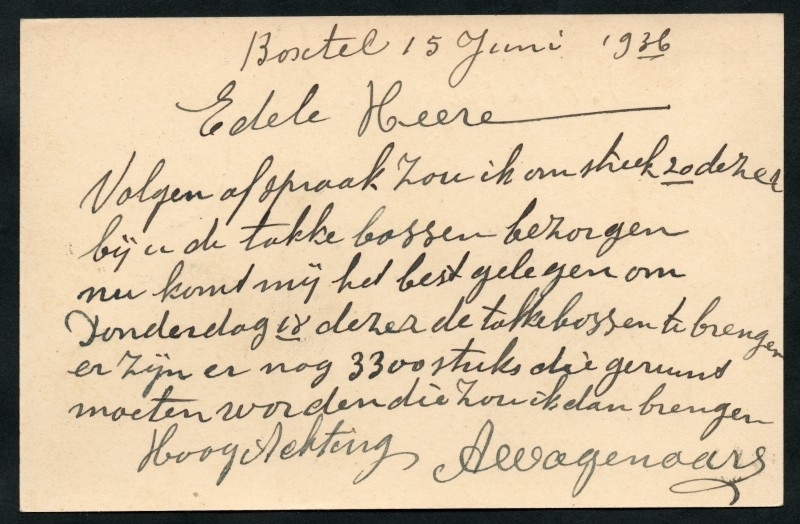 Boxtel 15 Juni 1936
Edele Heere
Volgen afspraak zou ik om streek 20 dezer
bij u de takke bossen bezorgen
nu komt mij het best gelegen om
Donderdag 18 dezer de takkebossen te brengen
er zijn er nog 3300 stuks die geruimt
moeten worden die zou ik dan brengen
HoogAchting AWagenaars